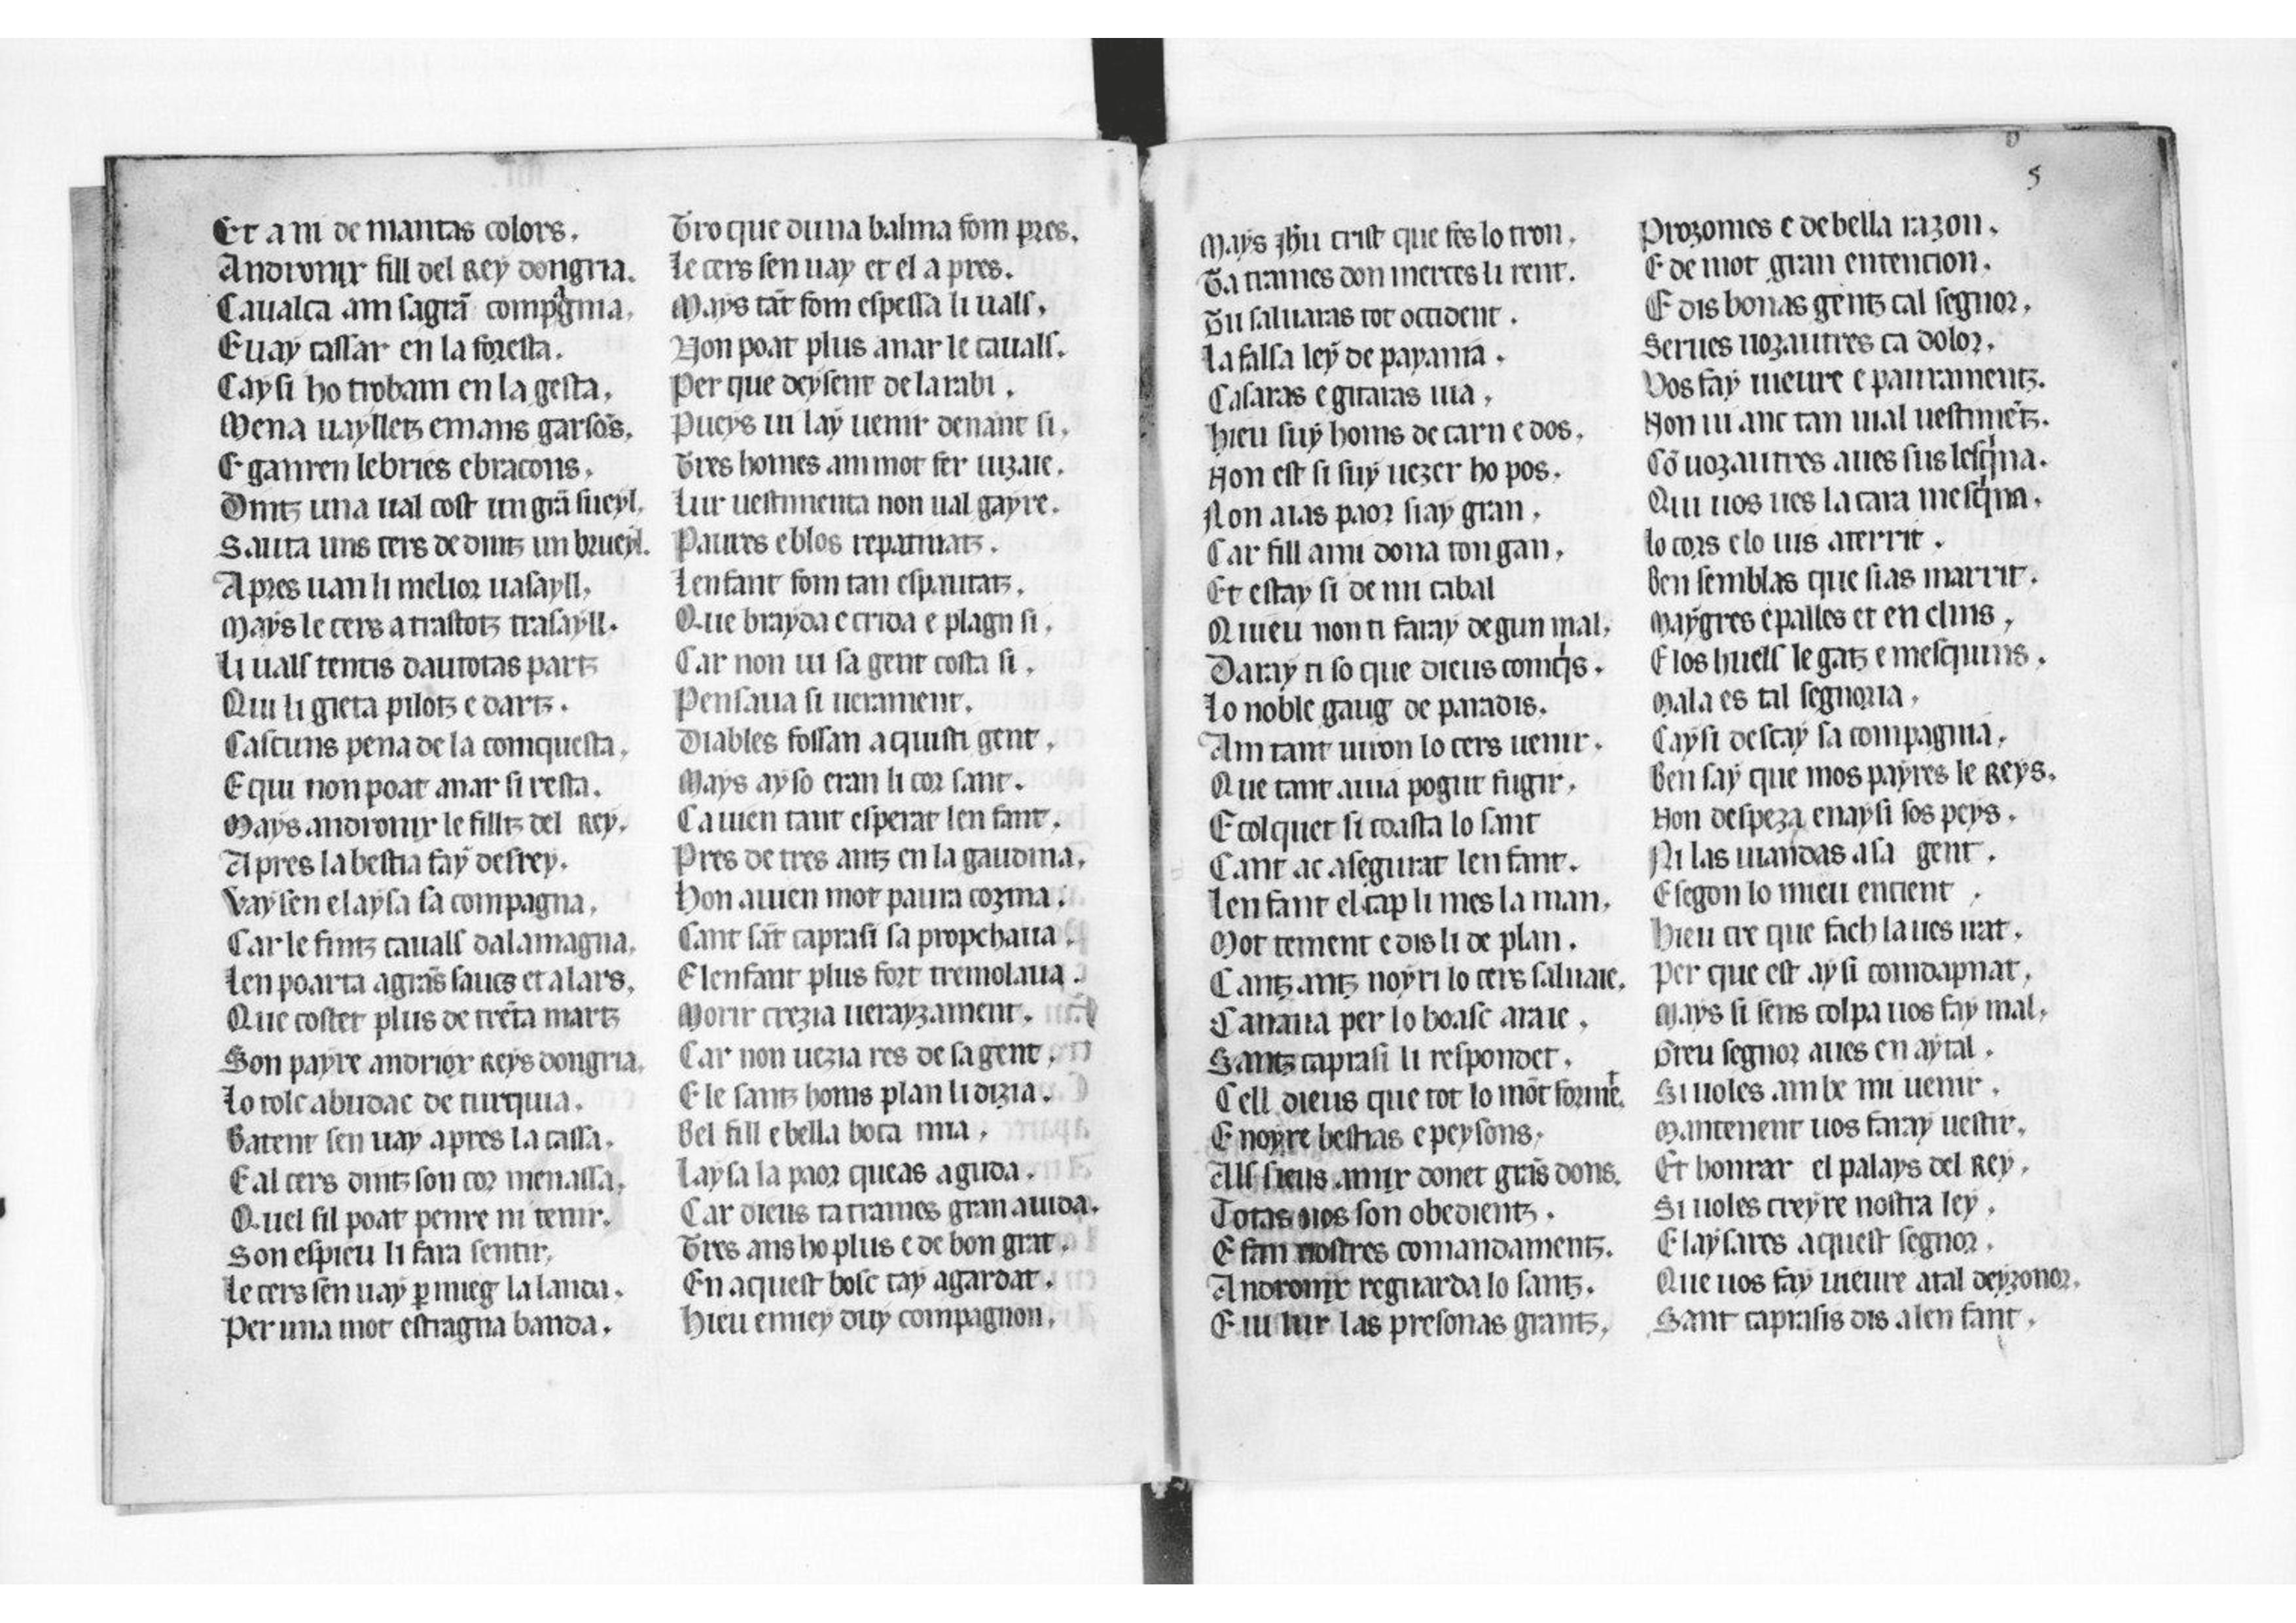 Et a ni de mantas colors.
Andronix fill del Rey dongria.
Caualca am sa grã compagnia.
E uay cassar en la foresta.
Cay si ho trobam en la gesta.
Mena uaylletz e mans garsõs.
E ganren lebries e bracons.
Dintz una ual cost un grã sueyl.
Sauta uns cers de dintz un brueyl.
Apres uan li melior uasayll.
Mays le cers a trastotz trasayll.
Li uals tentis dautotas partz
Qui li gieta pilotz e dartz.
Cascuns pena de la comquesta.
E qui non poat anar si resta.
Mays andronix le filltz del Rey.
Apres la bestia fay desrey.
Vay sen e laysa sa compagna.
Car le fintz cauals dalamagna.
Len poarta a grãs saucs et a lars.
Que costet plus de trẽta martz
Son payre andrior Reys dongria.
Lo tolc abudac de turquia.
Batent sen uay apres la cassa.
E al cers dintz son cor menassa.
Quel fil poat penre ni tenir.
Son espieu li fara sentir.
Le cers sen uay ꝑ mieg la landa.
Per una mot estragna banda.
Tro que duna balma fom pres.
Le cers sen uay et el apres.
Mays tãt fom espessa li uals.
Non poat plus anar le cauals.
Per que deysent de larabi.
Pueys ui lay uenir denant si.
Tres homes am mot fer uizaie.
Lur uestimenta non ual gayre.
Paures e blos repatriatz.
Lenfant fom tan espautatz.
Que brayda e crida e plagn si.
Car non ui sa gent costa si.
Pensaua si uerament.
Diables fossan aquisti gent.
Mays ayso eran li cor sant.
Cauien tant esperat lenfant.
Pres de tres antz en la gaudina.
Hon auien mot paura cozina.
Cant sãt caprasi sa propchaua.
E lenfant plus fort tremolaua.
Morir crezia uerayzament.
Car non uezia res de sa gent.
E le santz homs plan li dizia.
Bel fill e bella boca mia.
Laysa la paor queas aguda.
Car dieus ta trames gran aiuda.
Tres ans ho plus e de bon grat.
En aquest bosc tay agardat.
Hieu e miey duy compagnon.
5
Mays jhũ crist que fes lo tron.
Ta trames don merces li rent.
Tu saluaras tot occident.
La falsa ley de payania.
Casaras e gitaras uia.
Hieu suy homs de carn e dos.
Non est si suy uezer ho pos.
Non aias paor siay gran.
Car fill a mi dona ton gan.
Et estay si de mi cabal
Quieu non ti faray degun mal.
Daray ti so que dieus comqis.
Lo noble gaug de paradis.
Am tant uiron lo cers uenir.
Que tant auia pogut fugir.
E colquet si coasta lo sant
Cant ac asegurat lenfant.
Lenfant el cap li mes la man.
Mot tement e dis li de plan.
Cantz antz noyri lo cers saluaie.
Canaua per lo boasc araie.
Santz caprasi li respondet.
Cell dieus que tot lo mõt formet.
E noyre bestias e peysons.
Als sieus amix donet grãs dons.
Totas nos son obedientz.
E fan nostres comandamentz.
Andronix reguarda lo santz.
E ui lur las presonas grantz.
Prozomes e de bella razon.
E de mot gran entencion.
E dis bonas gentz cal segnor.
Serues uozautres ca dolor.
Vos fay uieure e pauramentz.
Non ui anc tan mal uestimẽtz.
Cõ uozautres aues sus lesqina.
Qui uos ues la cara mesqina.
Lo cors e lo uis aterrit.
Ben semblas que sias marrit.
Maygres e palles et enclins.
E los huells legatz e mesquins.
Mala es tal segnoria.
Caysi descay sa compagnia.
Ben say que mos payres le Reys.
Non despeza enaysi sos peys.
Ni las uiandas a sa gent.
E segon lo mieu encient.
Hieu cre que fach laues uat.
Per que est aysi comdapnat.
Mays si sens colpa uos fay mal.
Greu segnor aues en aytal.
Si uoles ambe mi uenir.
Mantenent uos faray uestir.
Et honrar el palays del Rey.
Si uoles creyre nostra ley.
E laysares aquest segnor.
Que uos fay uieure a tal deyzonor.
Sant caprasis dis a lenfant.